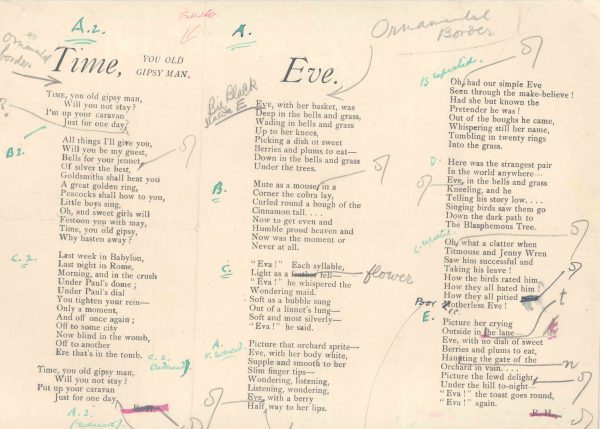 A.2.
Fullstop
A.
Ornamental
Border
ornamental
border
Time, YOU OLD
GIPSY MAN.
TIME, you old gipsy man,
Will you not stay?
Put up your caravan
Just for one day?
?
B2.
All things I'll give you,
Will you be my guest,
Bells for your jennet
Of silver the best,
Goldsmiths shall beat you
A great golden ring,
Peacocks shall bow to you,
Little boys sing,
Oh, and sweet girls will
Festoon you with may,
Time, you old gipsy,
Why hasten away?
C.2.
Last week in Babylon,
Last night in Rome,
Morning, and in the crush
Under Paul's dome;
Under Paul's dial
You tighten your rein—
Only a moment,
And off once again;
Off to some city
Now blind in the womb,
Off to another
Ere that's in the tomb.
C.2.
(reduced)
Time, you old gipsy man,
Will you not stay?
Put up your caravan
Just for one day
A.2.
(reduced)
R. H.
Eve.
Big Black
E
EVE, with her basket, was
Deep in the bells and grass,
Wading in bells and grass
Up to her knees,
Picking a dish of sweet
Berries and plums to eat—
Down in the bells and grass
Under the trees.
B.
Mute as a mouse in a
Corner the cobra lay,
Curled round a bough of the
Cinnamon tall. . . .
Now to get even and
Humble proud heaven and
Now was the moment or
Never at all.
C.
"Eva!" Each syllable,
Light as a feather fell—
flower
"Eva!" he whispered the
Wondering maid.
Soft as a bubble sung
Out of a linnet's lung—
Soft and most silverly—
"Eva!" he said.
A.
reduced
Picture that orchard sprite—
Eve, with her body white,
Supple and smooth to her
Slim finger tips—
Wondering, listening,
Listening, wondering,
Eve, with a berry
Half way to her lips.
B repeated.
Oh, had our simple Eve
Seen through the make-believe!
Had she but known the
Pretender he was!
Out of the boughs he came,
Whispering still her name,
Tumbling in twenty rings
Into the grass.
D.
Here was the strangest pair
In the world anywhere—
Eve, in the bells and grass
Kneeling, and he
Telling his story low. . . .
Singing birds saw them go
Down the dark path to
The Blasphemous Tree.
C repeated
Oh, what a clatter when
Titmouse and Jenny Wren
Saw him successful and
Taking his leave!
How the birds rated him,
How they all hated him!
How they all pitied
Motherless Eve!
Poor
t
E.
Picture her crying
Outside in the lane
Eve, with no dish of sweet
Berries and plums to eat,
Haunting the gate of the
n
Orchard in vain. . . .
Picture the lewd delight
Under the hill to-night—
"Eva!" the toast goes round,
"Eva!" again.
R. H.